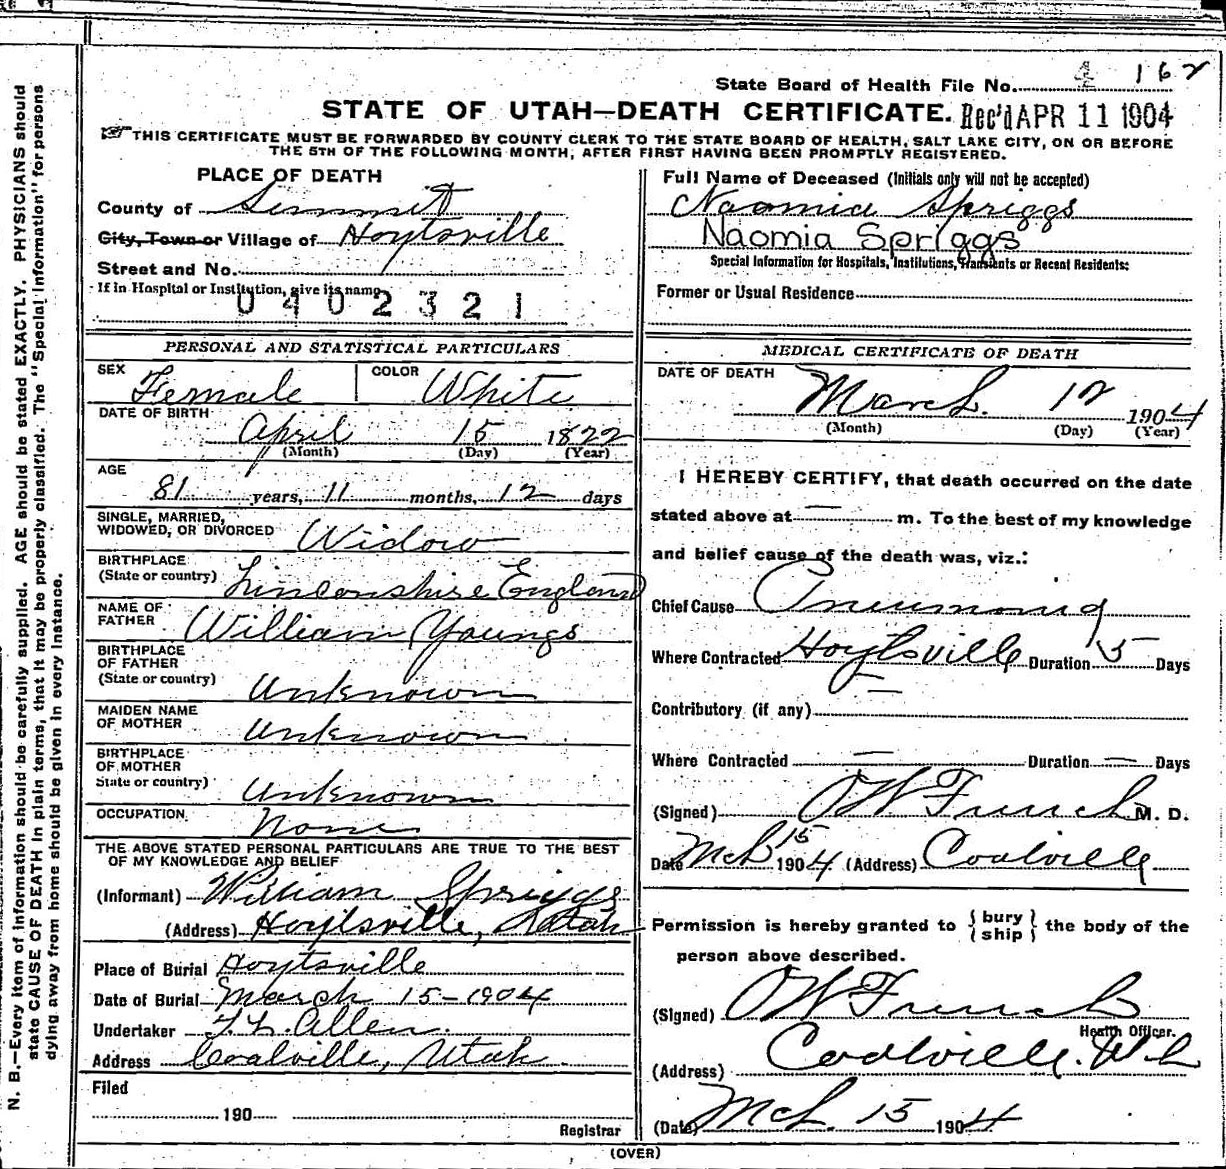 State Board of Health File No. 4 162
STATE OF UTAH—DEATH CERTIFICATE. Rec'd APR 11 1904
THIS CERTIFICATE MUST BE FORWARDED BY COUNTY CLERK TO THE STATE BOARD OF HEALTH, SALT LAKE CITY, ON OR BEFORE
THE 5TH OF THE FOLLOWING MONTH, AFTER FIRST HAVING BEEN PROMPTLY REGISTERED.
PLACE OF DEATH
County of Summit
City, Town or Village of Hoytsville
Street and No.
If in Hospital or Institution, give its name
0402321
Full Name of Deceased (Initials only will not be accepted)
Naomia Spriggs
Naomia Spriggs
Special Information for Hospitals, Institutions, Transients or Recent Residents:
Former or Usual Residence
PERSONAL AND STATISTICAL PARTICULARS
SEX Female COLOR White
DATE OF BIRTH
April 15 1822
(Month) (Day) (Year)
AGE
81 years, 11 months, 12 days
SINGLE, MARRIED,
WIDOWED, OR DIVORCED Widow
BIRTHPLACE
(State or country) Lincolnshire England
NAME OF
FATHER William Youngs
BIRTHPLACE
OF FATHER
(State or country) Unknown
MAIDEN NAME
OF MOTHER Unknown
BIRTHPLACE
OF MOTHER
State or country) Unknown
OCCUPATION None
THE ABOVE STATED PERSONAL PARTICULARS ARE TRUE TO THE BEST
OF MY KNOWLEDGE AND BELIEF
(Informant) William Spriggs
(Address) Hoytsville, Utah
Place of Burial Hoytsville
Date of Burial March 15-1904
Undertaker T. L. Allen.
Address Coalville, Utah
Filed
190
Registrar
MEDICAL CERTIFICATE OF DEATH
DATE OF DEATH
March. 12 1904
(Month) (Day) (Year)
I HEREBY CERTIFY, that death occurred on the date
stated above at — m. To the best of my knowledge
and belief cause of the death was, viz.:
Chief Cause Pneumonia
Where Contracted Hoytsville Duration 5 Days
Contributory (if any) —
Where Contracted — Duration — Days
(Signed) O W French M. D.
Date Mch 15 1904 (Address) Coalville
Permission is hereby granted to { bury ship } the body of the
person above described.
(Signed) O W French
Health Officer.
(Address) Coalville. Utah
(Date) Mch. 15 1904
(OVER)
N. B.—Every item of information should be carefully supplied. AGE should be stated EXACTLY. PHYSICIANS should
state CAUSE OF DEATH in plain terms, that it may be properly classified. The "Special Information" for persons
dying away from home should be given in every instance.